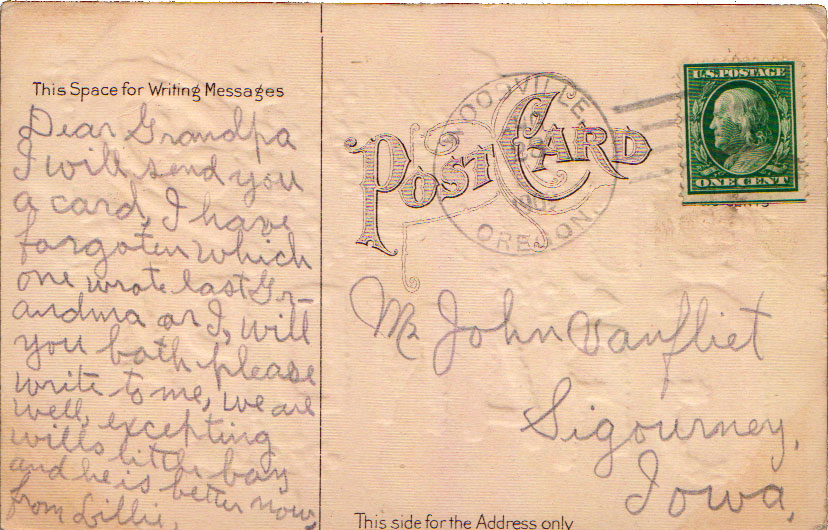 This Space for Writing Messages
Dear Grandpa
I will send you
a card, I have
forgoten which
one wrote last Gr-
andma or I, will
you both please
write to me, we are
well, excepting
wills little boy
and he is better now,
from Lillie,
POST CARD
OREGON.
U.S. POSTAGE
ONE CENT
Mr John Vanfliet
Sigourney,
Iowa,
This side for the Address only